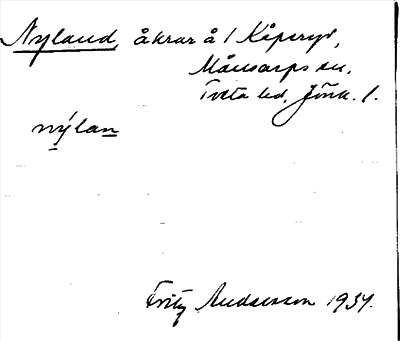 Nyland, åkrar å 1 Kåperyd,
Månsarps sn,
Tveta hd, Jönk. l.
nýlan
Fritz Andersson 1934.